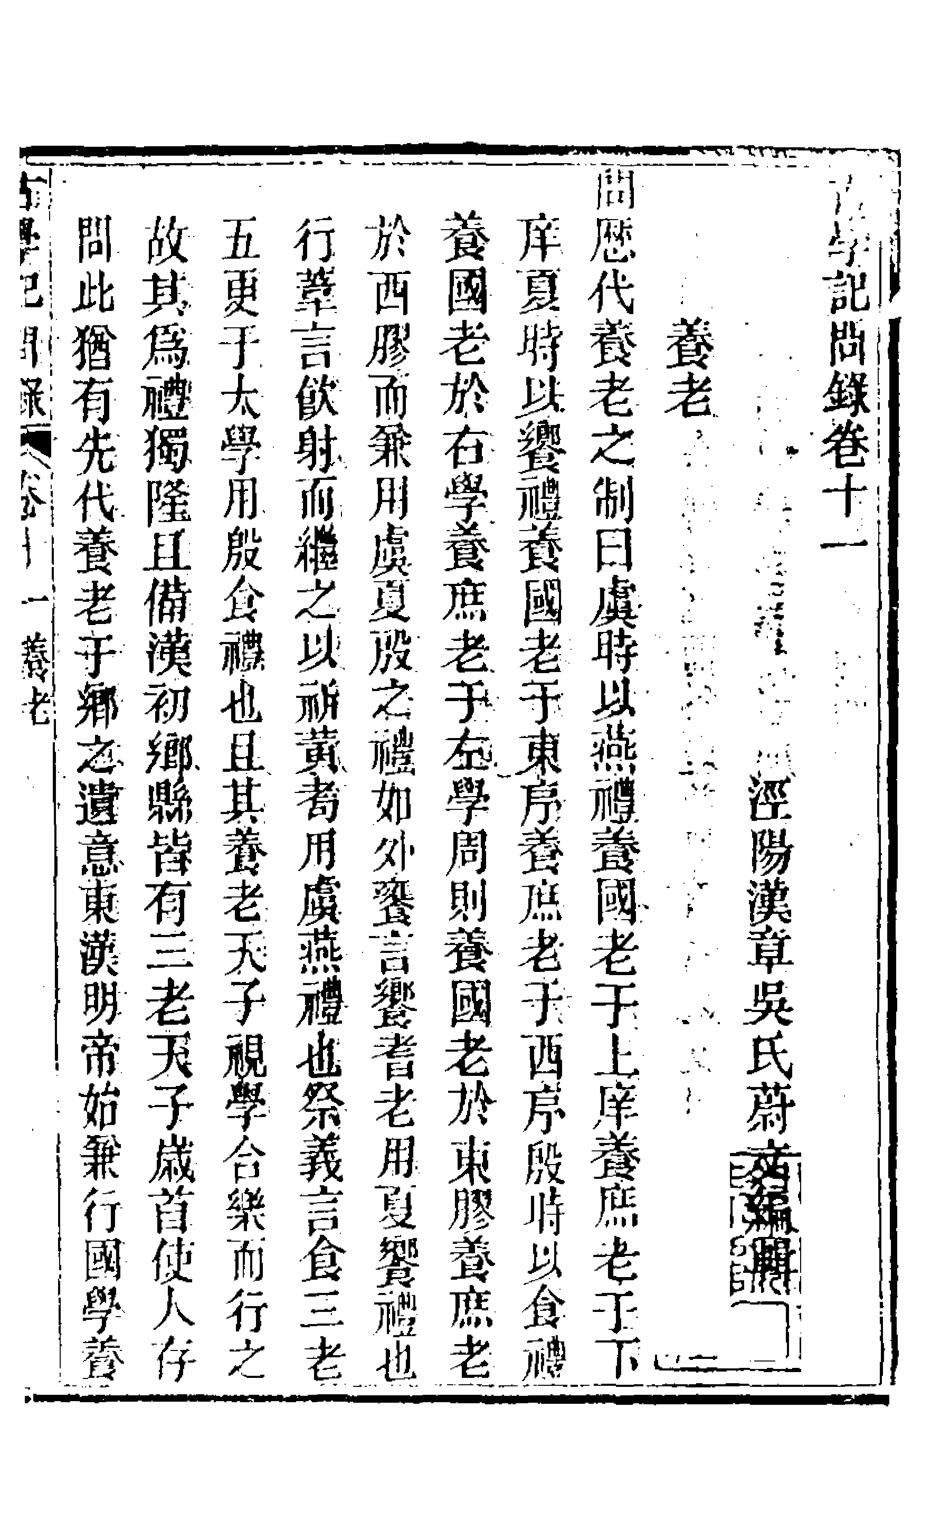 古學記問錄卷十一
涇陽漢章吳氏蔚文編輯
養老
問歷代養老之制曰虞時以燕禮養國老于上庠養庶老于下
庠夏時以饗禮養國老于東序養庶老于西序殷時以食禮
養國老於右學養庶老于左學周則養國老於東膠養庶老
於西膠而兼用虞夏殷之禮如外饔言饗耆老用夏饗禮也
行葦言飲射而繼之以祈黃耇用虞燕禮也祭義言食三老
五更于太學用殷食禮也且其養老天子視學合樂而行之
故其爲禮獨隆且備漢初鄉縣皆有三老天子歲首使人存
問此猶有先代養老于鄉之遺意東漢明帝始兼行國學養
古學記問錄 卷十一 養老